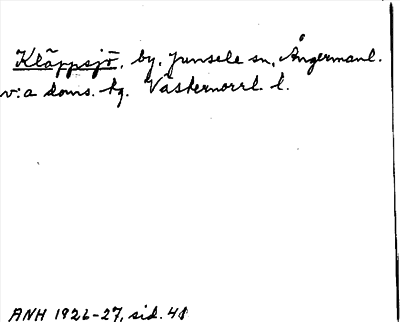 Kläppsjö, by, Junsele sn, Ångermanl.
v:a doms. hg. Västernorrl. l.
ANH 1926-27, sid. 48